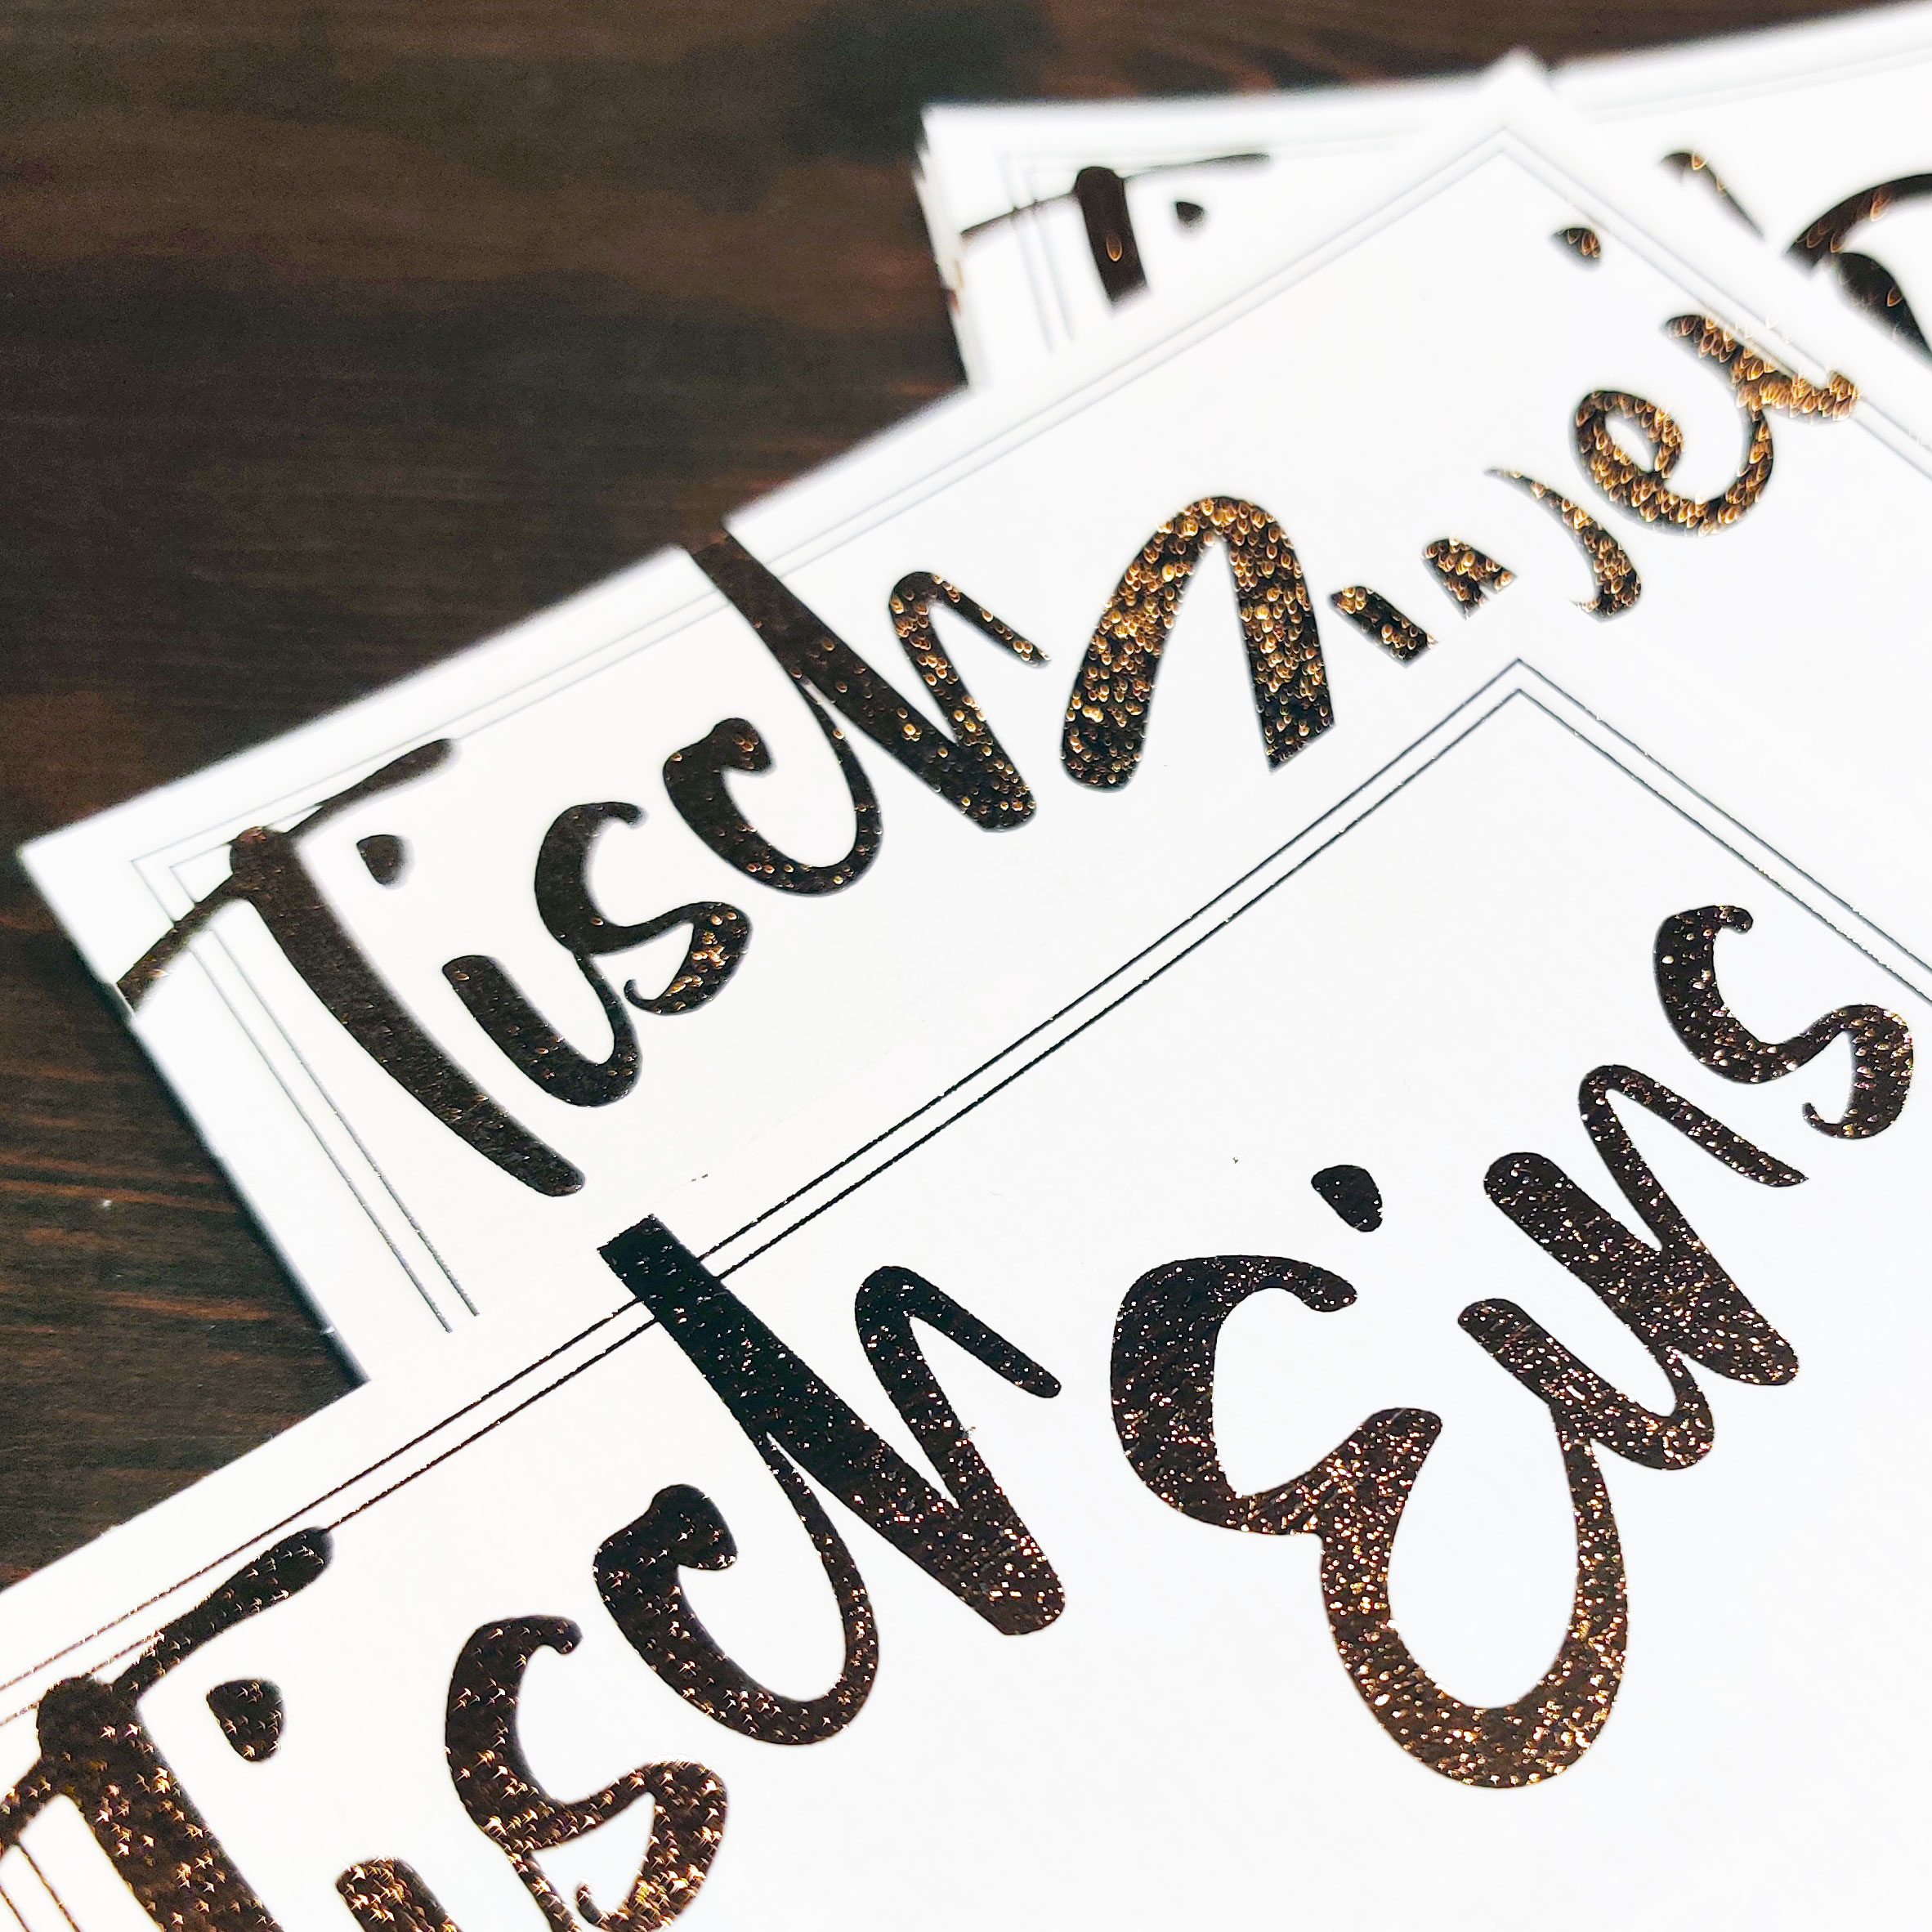 Tisch Zwei
Tisch Eins